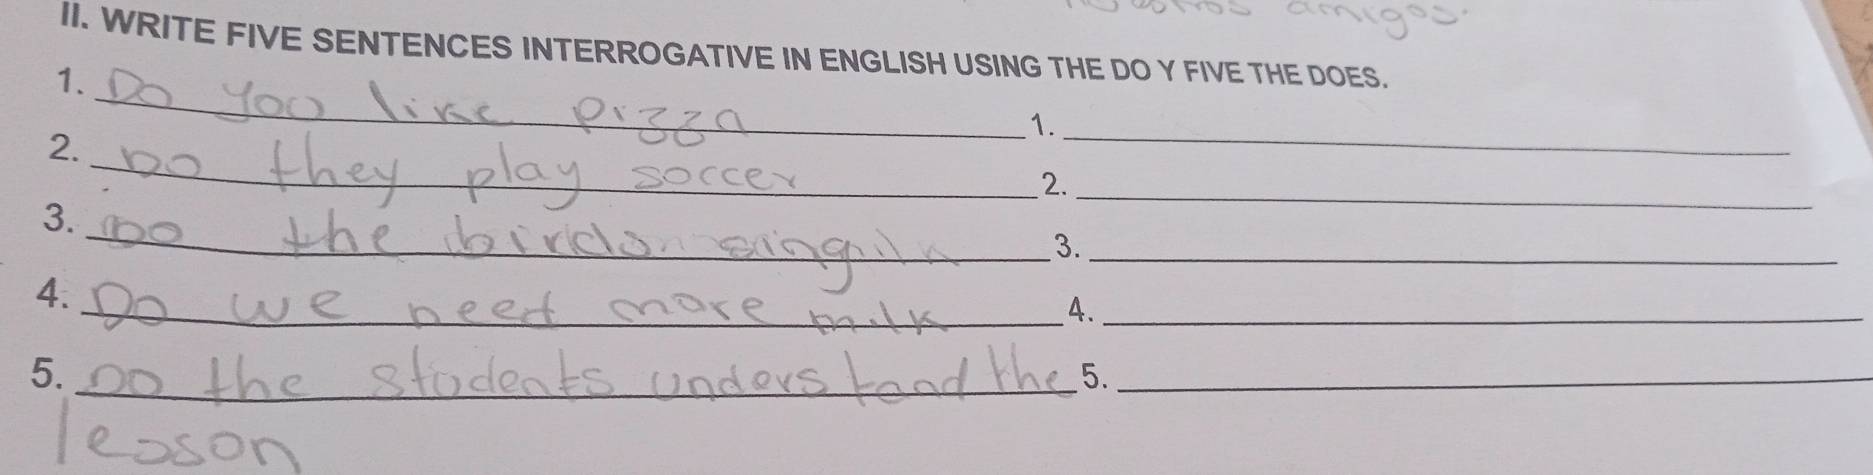 nosotros amigos.
II. WRITE FIVE SENTENCES INTERROGATIVE IN ENGLISH USING THE DO Y FIVE THE DOES.
1. Do you like pizza 1.
2. Do they play soccer 2.
3. Do the birds 3.
4. Do we need more milk 4.
5. Do the students understand the 5.
lesson